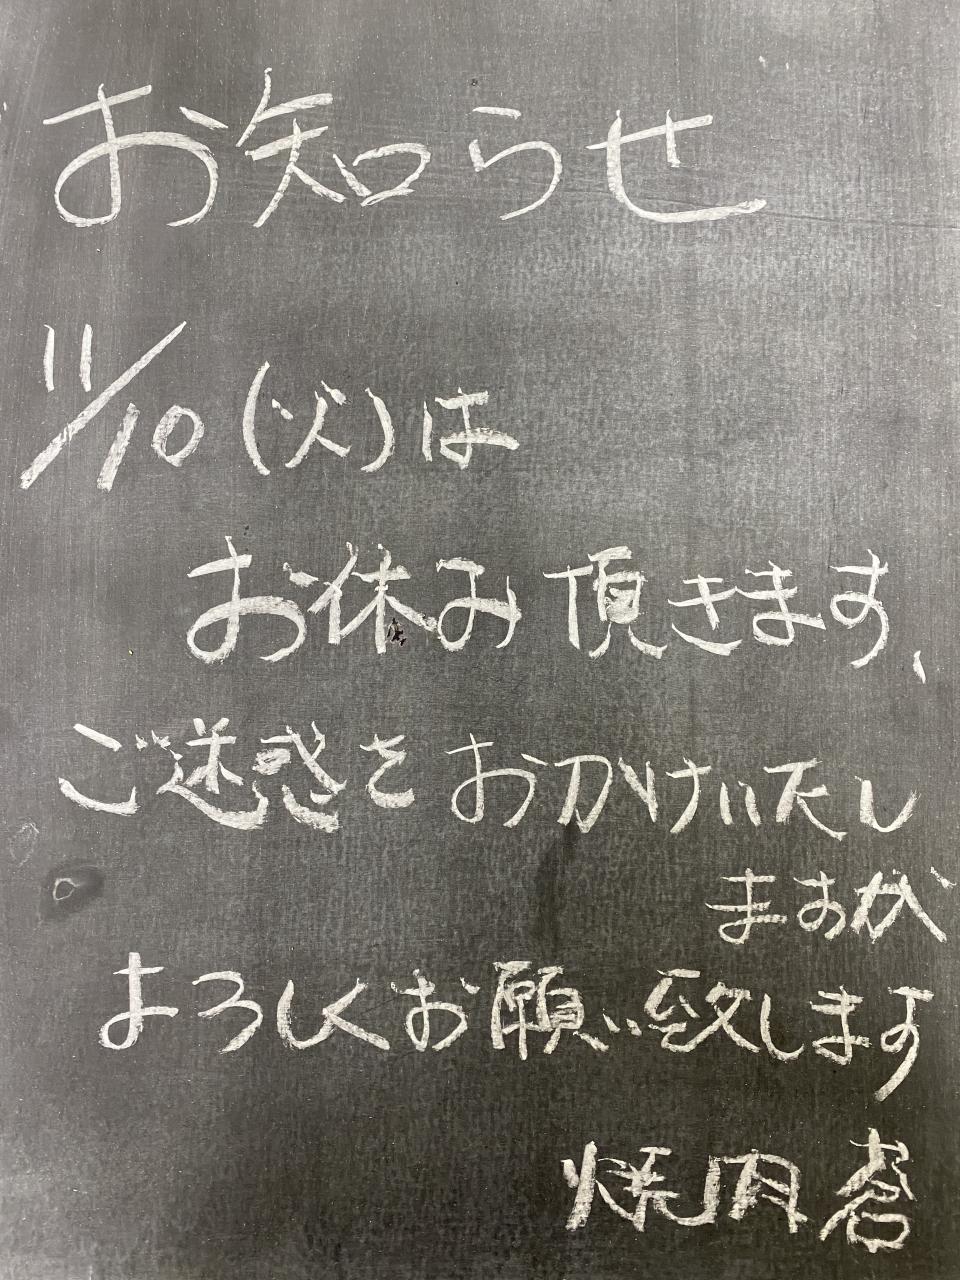 お知らせ
11/10(火)は
お休み頂きます、
ご迷惑をおかけいたし
ますが
よろしくお願い致します
焼肉蒼